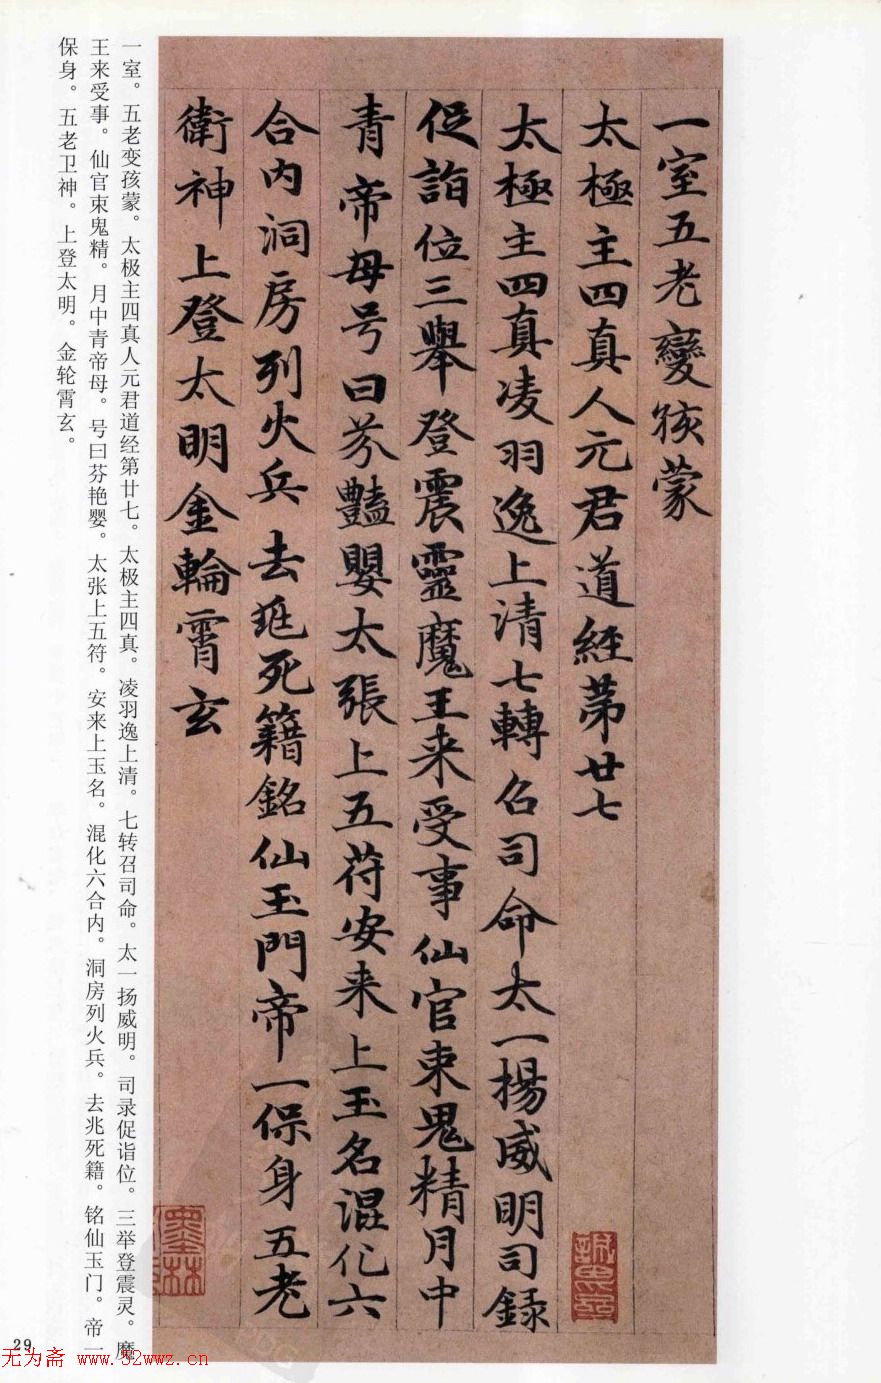 一室五老變孩蒙
太極主四真人元君道經苐廿七
太極主四真凌羽逸上清七轉召司命太一揚威明司録
促詣位三舉登震靈魔王来受事仙官束鬼精月中
青帝母号曰芬豔嬰太張上五苻安来上玉名混化六
合内洞房列火兵去死籍銘仙玉門帝一保身五老
衛神上登太明金輪霄玄
一室。五老变孩蒙。太极主四真人元君道经第廿七。太极主四真。凌羽逸上清。七转召司命。太一扬威明。司录促诣位。三举登震灵。魔
王来受事。仙官束鬼精。月中青帝母。号曰芬艳婴。太张上五符。安来上玉名。混化六合内。洞房列火兵。去兆死籍。铭仙玉门。帝一
保身。五老卫神。上登太明。金轮霄玄。
29
无为斋 www.52wwz.cn